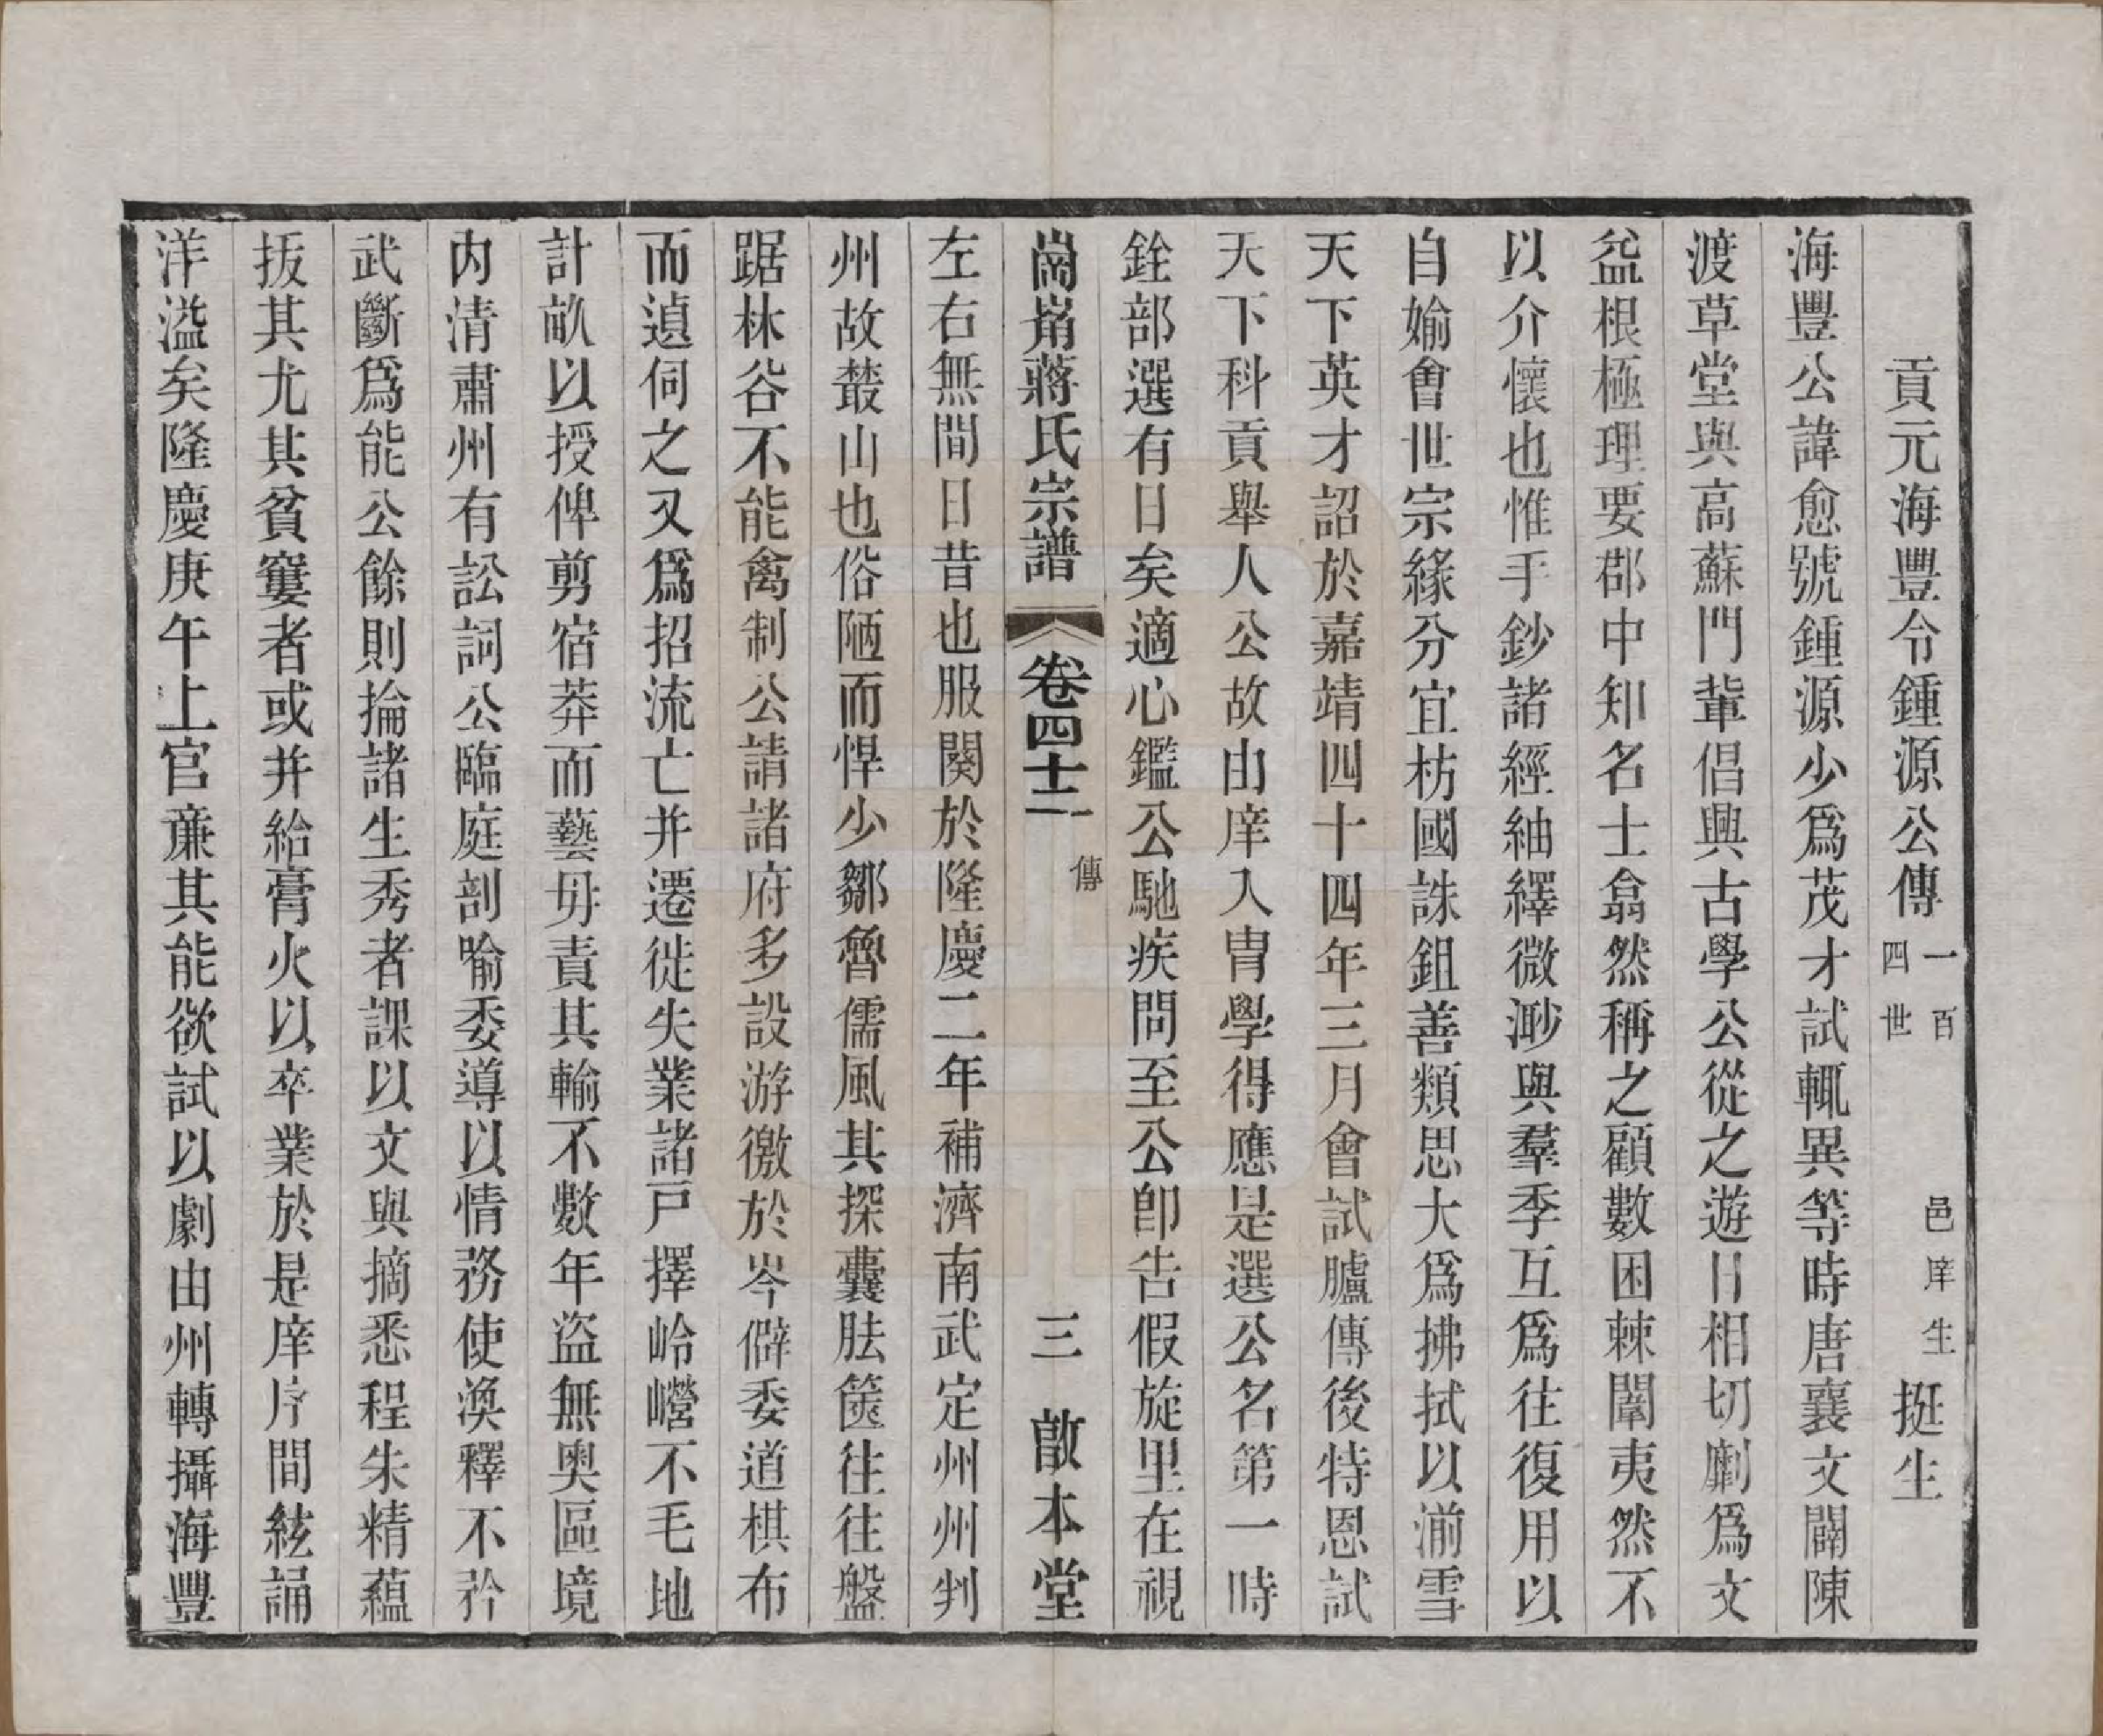 貢元海豐令鍾源公傳一百四世　邑庠生挺生
海豐公諱愈號鍾源少爲茂才試輒異等時唐襄文闢陳
渡草堂與高蘇門輩倡興古學公從之遊日相切劘爲文
益根極理要郡中知名士翕然稱之顧數困棘闈夷然不
以介懷也惟手鈔諸經紬繹微渺與羣季互爲往復用以
自媮會世宗緣分宜枋國誅鉏善類思大爲拂拭以湔雪
天下英才詔於嘉靖四十四年三月會試臚傳後特恩試
天下科貢舉人公故由庠入冑學得應是選公名第一時
銓部選有日矣適心鑑公馳疾問至公卽告假旋里在視
崗𡵆蔣氏宗譜　卷四十二　傳　三　敃本堂
左右無間日昔也服闋於隆慶二年補濟南武定州州判
州故叢山也俗陋而悍少鄒魯儒風其探囊胠篋往往盤
踞林谷不能禽制公請諸府多設游徼於岑僻委道棋布
而遉伺之又爲招流亡并遷徙失業諸戸擇岭嶝不毛地
計畝以授俾剪宿莽而藝毋責其輸不數年盜無奧區境
内清肅州有訟詞公臨庭剖喻委導以情務使渙釋不矜
武斷爲能公餘則掄諸生秀者課以文與摘悉程朱精蘊
拔其尤其貧窶者或并給膏火以卒業於是庠序間絃誦
洋溢矣隆慶庚午上官亷其能欲試以劇由州轉攝海豐